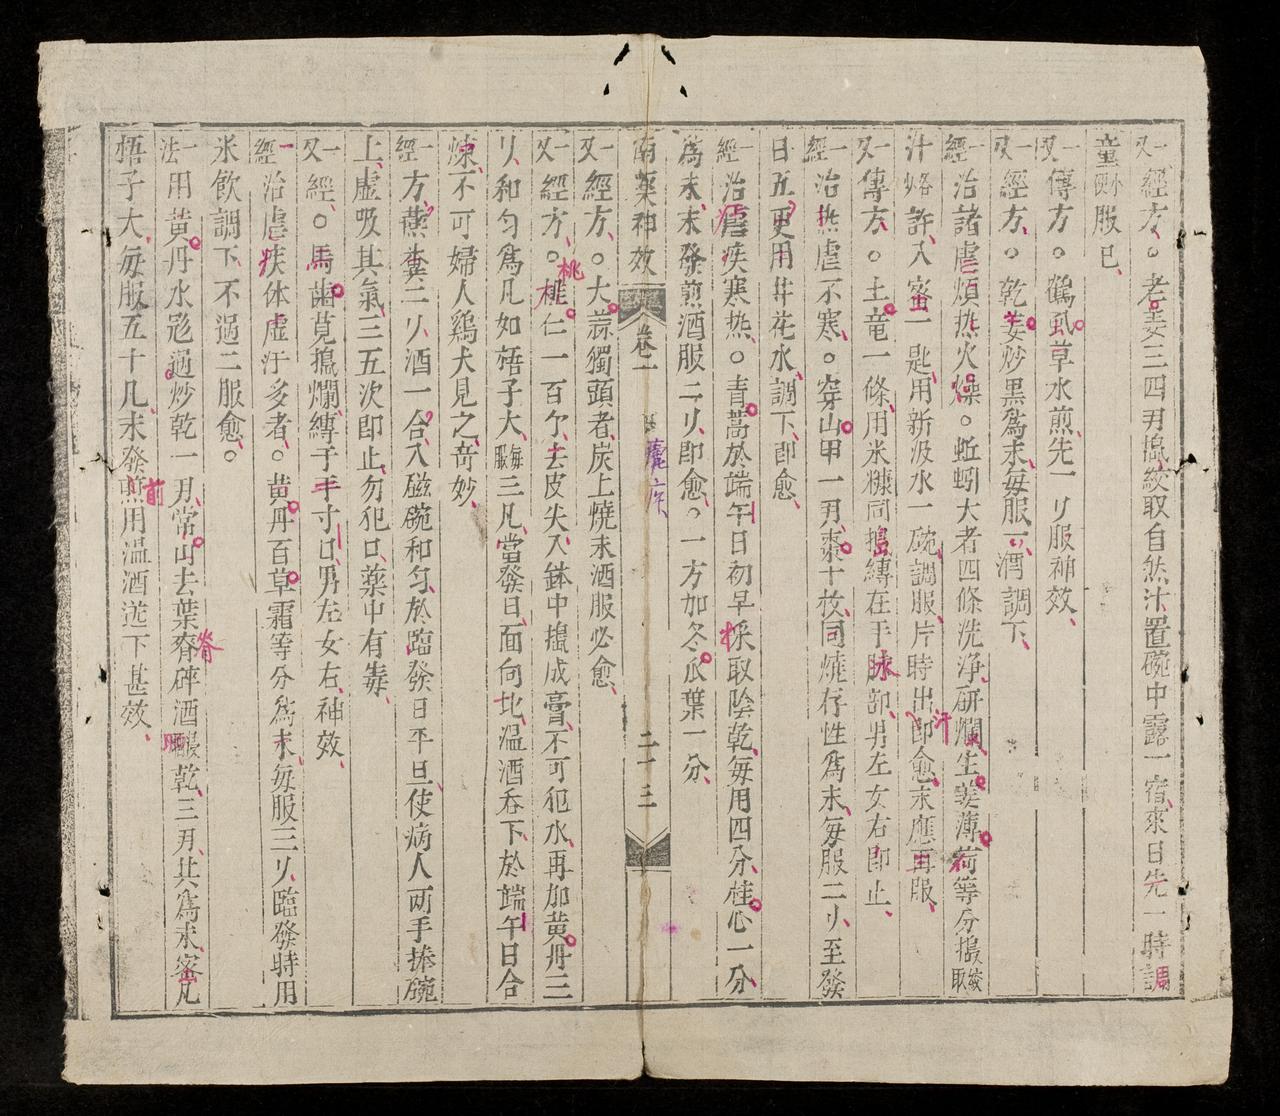 又一經方、老姜三四片搗絞取自然汁置碗中露一宿來日先一時調
童便小服已、
又一傳方。鶴虱草水煎先一刂服神效、
又一經方。乾姜炒黑為末、每服一刂酒調下、
一經治諸虐煩热火燥。蚯蚓大者四條洗净、研爛、生姜薄荷等分搗絞取
汁烙許、入蜜一匙、用新汲水一碗、調服、片時出汗即愈、未應再服、
又一傳方。土竜一條、用米糠同搗縛在手脉部、男左女右即止、
一經治热虐不寒。穿山甲一刄、棗十枚、同燒存性為末、每服二刂、至發
日五更用井花水、調下、即愈、
一經治虐疾寒热。青蒿於端午日初早採取陰乾、每用四分、桂心一分、
為末、末發煎酒服二刂、即愈。一方加冬瓜葉一分、
南藥神效 卷二 瘧症 二十三
又一經方、。大蒜獨頭者、炭上燒末酒服必愈、
又一經方、。桃仁一百个、去皮尖、入鉢中搗成膏、不可犯水、再加黃丹三
刂、和匀為凡如梧子大、每服三凡、當發日、面向北、温酒吞下、於端午日合
煉、不可婦人鷄犬見之、奇妙、
一經方、燕糞二刂、酒一合、入磁碗和匀、於臨發日平旦、使病人兩手捧碗
上、虚吸其氣、三五次即止、勿犯口、薬中有毒、
又一經、。馬歯莧搗爛、縛于手寸口、男左女右、神效、
一經治虐疾体虚汗多者、。黄丹百草霜等分為末、每服三刂、臨發時用
米飲調下、不過二服愈。
一法用黄丹水迯過炒乾一刄、常山去葉脊碎酒䤃乾三刄、共為末、密凡
梧子大、每服五十凡、末發前用温酒送下甚效、